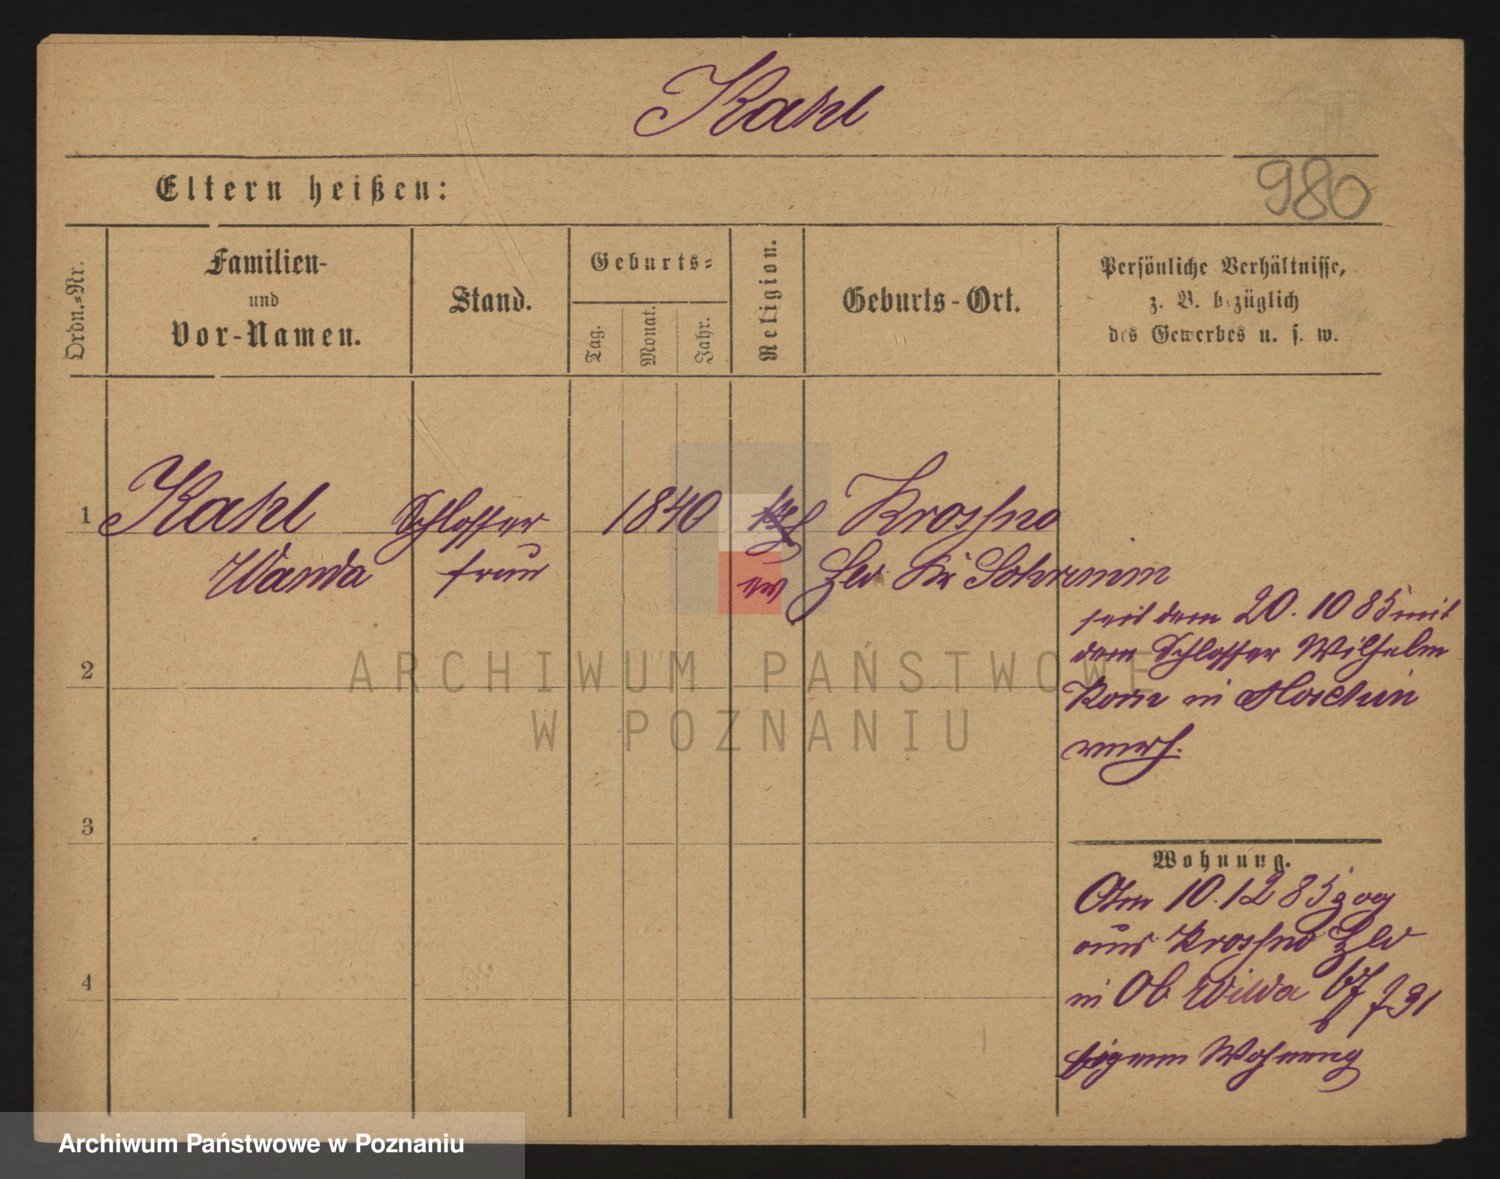 Kahl
980
Eltern heißen:
Ordn.=Nr.
Familien-
und
Vor-Namen.
Stand.
Geburts=
Tag.
Monat.
Jahr.
Religion.
Geburts-Ort.
Persönliche Verhältnisse,
z. B. bezüglich
des Gewerbes u. s. w.
1
Kahl
Wanda
Schlosser
frau
1840
ev
Kroschno
Hld Kr Schrimm
seit dem 20.10 85 mit
dem Schlosser Wilhelm
in Moschin
verh.
2
3
4
Wohnung.
Am 10.12 85 zog
aus Kroschno Hld
in Ob Wilda
Wohnung
ARCHIWUM PAŃSTWOWE
W POZNANIU
Archiwum Państwowe w Poznaniu